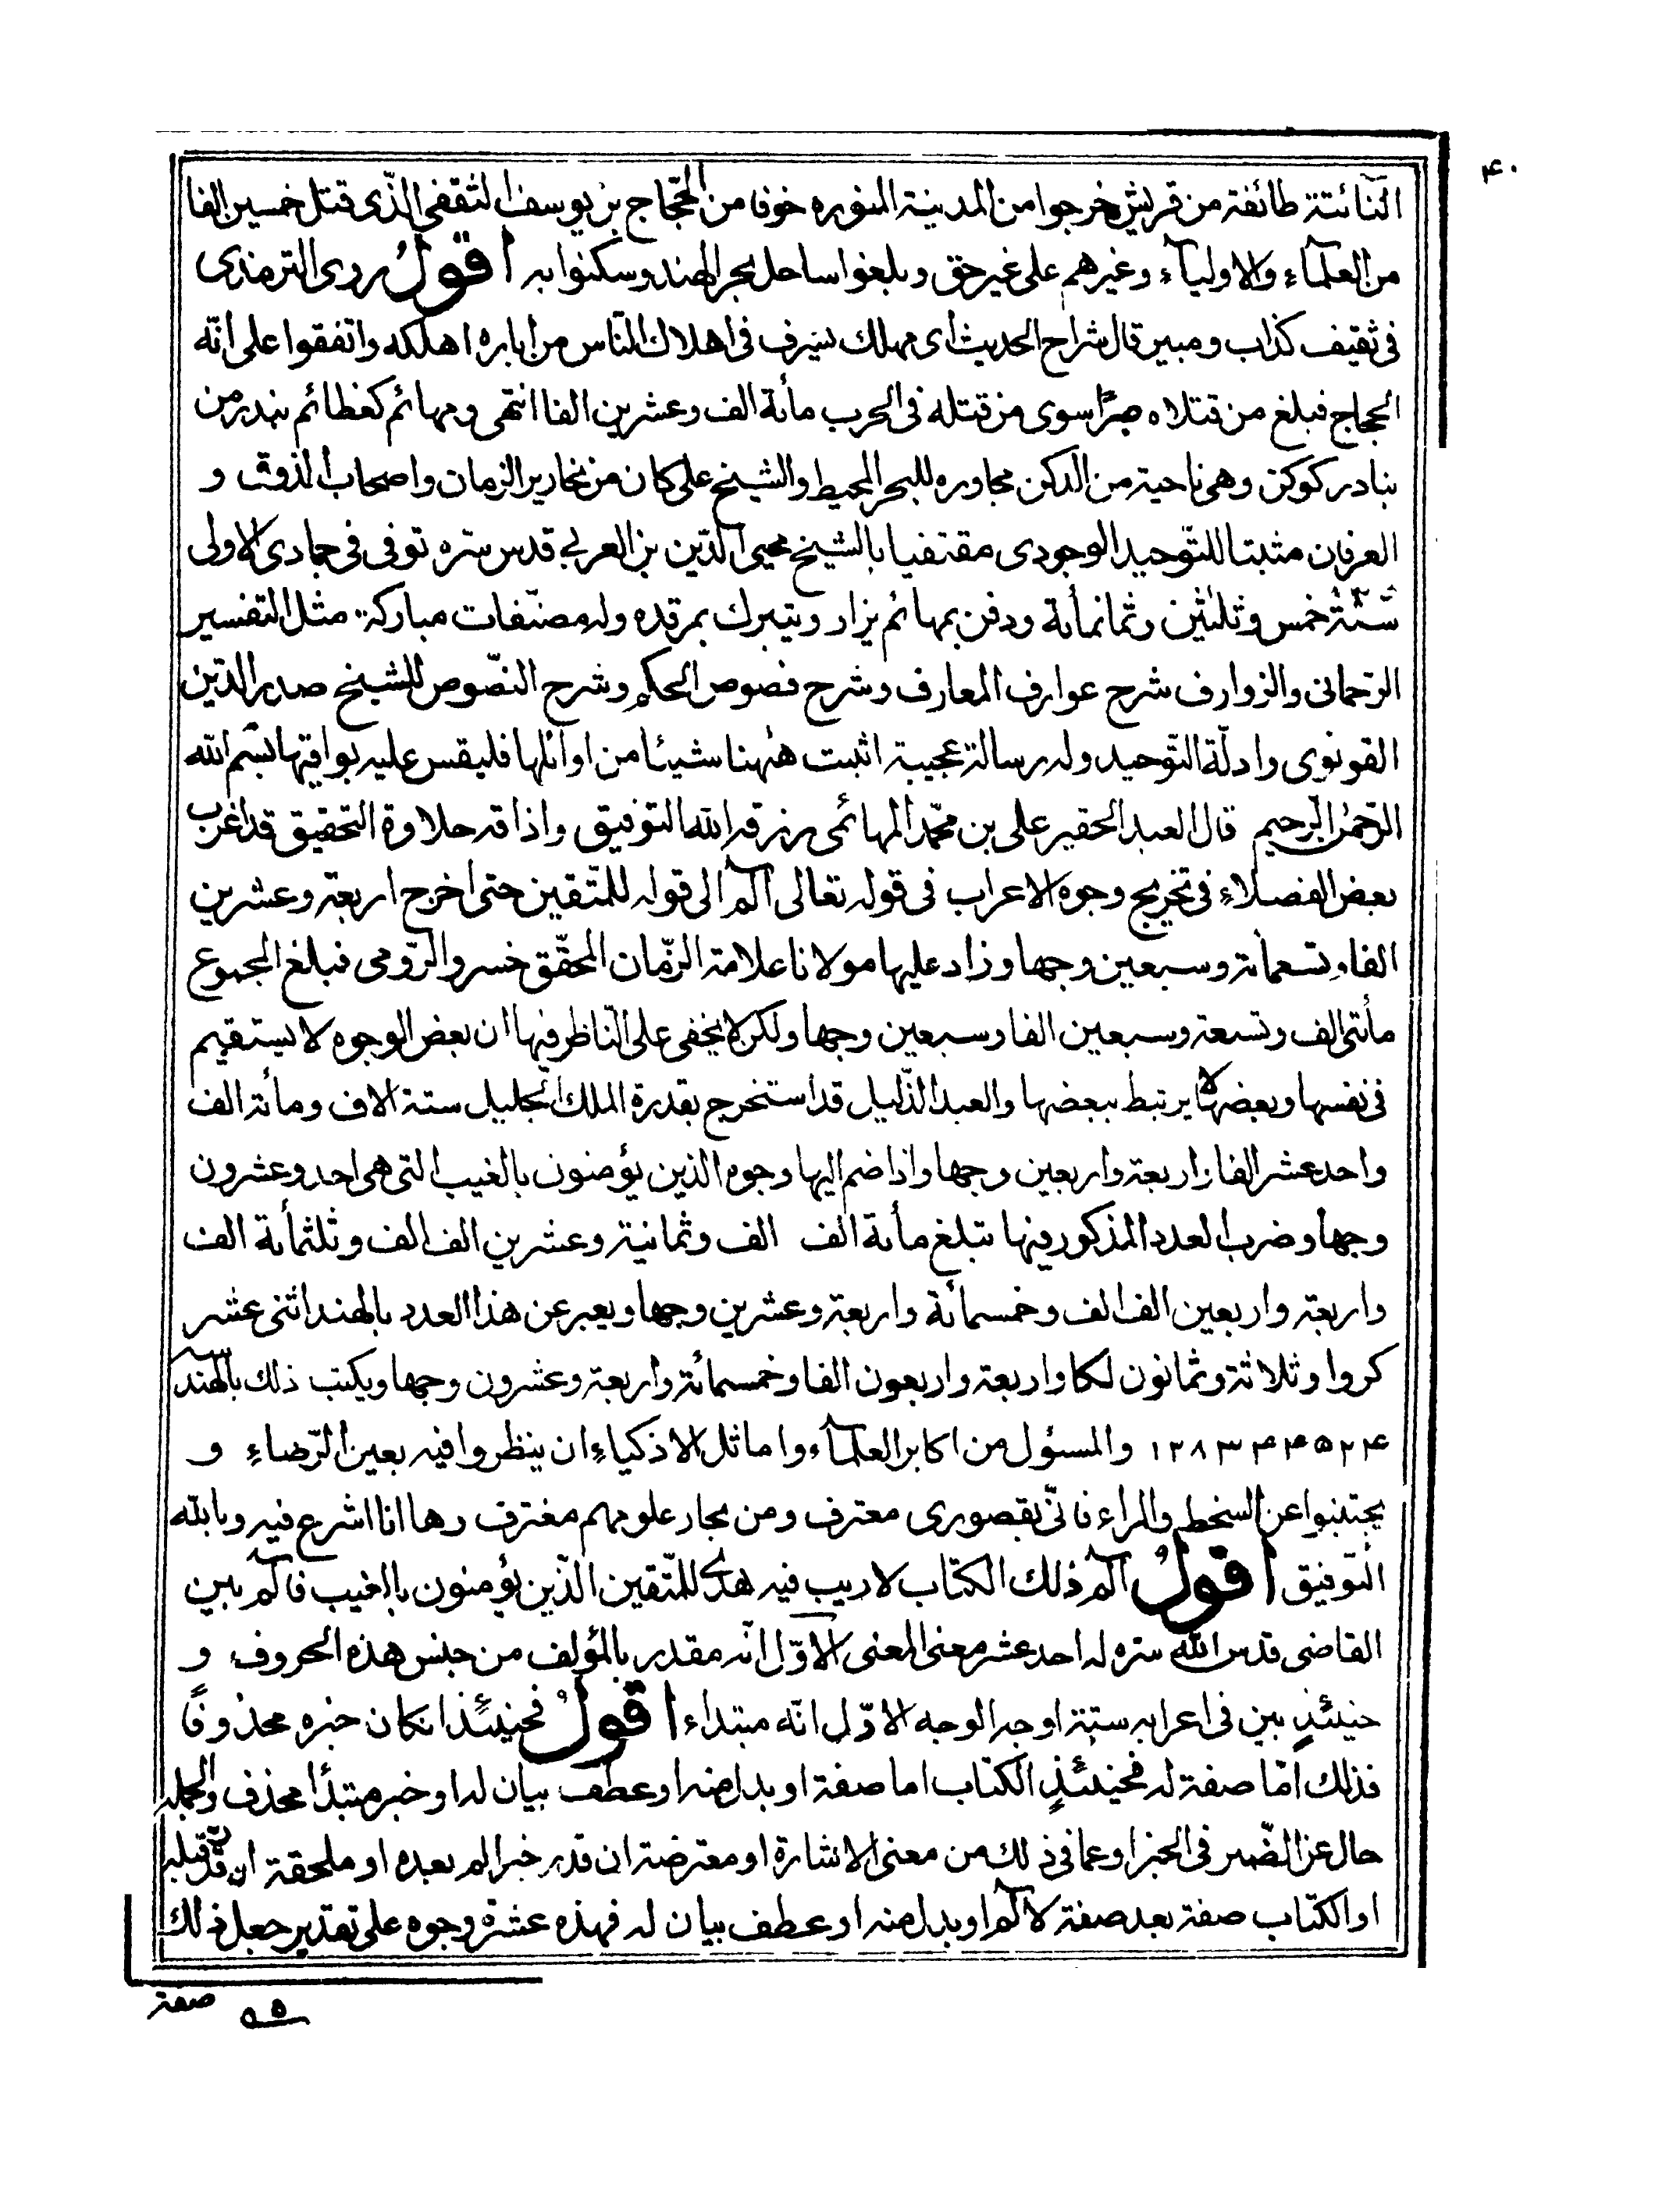 ۴۰
النّائتة طائفة من قريش خرجوا من المدينة المنوره خوفا من الحجّاج بن يوسف الثقفي الذّى قتل خمسين الفا
من العلمآء والاوليآء وغيرهم على غير حق وبلغوا ساحل بحر الهند وسكنوا به اقولُ روى الترمذى
فى ثقيف كذاب ومبير قال شراح الحديث اى مهلك يسرف فى اهلاك النّاس من اباره اهلكه واتفقوا على انّه
الحجاج فبلغ من قتلاه صبرًا سوى من قتله فى الحرب مأئة الف وعشرين الفا انتهى ومهائم كعظائم بندر من
بنادر كوكن وهى ناحية من الدكن مجاوره للبحر المحيط والشيخ على كان من نحارير الزمان واصحاب الذوق و
العرفان مثبتا للتّوحيد الوجودى مقتفيا بالشيخ محيى الدّين بن العربى قدس سرّه توفى فى جمادى الاولى
سنة خمس وثلثين وثمانمأئة ودفن بمهائم يزار ويتبرك بمرقده وله مصنّفات مباركة مثل التفسير
الرّحمانى والزوارف شرح عوارف المعارف وشرح فصوص الحكم وشرح النصّوص للشيخ صدر الدّين
القونوى وادلّة التّوحيد وله رسالة عجيبة اثبت هٰهنا شيئا من اوائلها فليقس عليه بواقيها بسم الله
الرّحمٰن الرّحيم قال العبد الحقير على بن محمّد المهائمى رزقه الله التوفيق واذاقه حلاوة التحقيق قد اغرب
بعض الفضلاء فى تخريج وجوه الاعراب فى قوله تعالى آلم الى قوله للمتّقين حتى اخرج اربعة وعشرين
الفا وتسعمائة وسبعين وجها وزاد عليها مولانا علامة الزّمان المحقّق خسرو الرّومى فبلغ المجموع
مأتى الف وتسعة وسبعين الفا وسبعين وجها ولكن لا يخفى على النّاظر فيها ان بعض الوجوه لا يستقيم
فى نفسها وبعضها لا يرتبط ببعضها والعبد الذّليل قد استخرج بقدرة الملك الجليل ستة الاف ومائة الف
واحد عشر الفا واربعة واربعين وجها واذا ضم اليها وجوه الذين يؤمنون بالغيب التى هى احد وعشرون
وجها وضرب العدد المذكور فيها تبلغ مأئة الف الف وثمانية وعشرين الف الف وثلثمأئة الف
واربعة واربعين الف الف وخمسمائة واربعة وعشرين وجها ويعبر عن هذا العدد بالهند اثنى عشر
كروا وثلاثة وثمانون لكا واربعة واربعون الفا وخمسمائة واربعة وعشرون وجها ويكتب ذلك بالهند
۱۲۸۳۴۴۵۲۴ والمسؤل من اكابر العلمآء واماثل الاذكياء ان ينظروا فيه بعين الرّضاءِ و
يجتنبوا عن السخط والمراء فانّى بقصورى معترف ومن بحار علومهم مغترف وها انا اشرع فيه وبالله
التّوفيق اقولُ آلم ذلك الكتاب لا ريب فيه هدى للمتّقين الذّين يؤمنون بالغيب فالم بين
القاضى قدس الله سرّه له احد عشر معنى المعنى الاوّل انه مقدر بالمؤلف من جنس هذه الحروف و
حينئذٍ بين فى اعرابه ستة اوجه الوجه الاوّل انّه مبتداء اقولُ فحينئذ ان كان خبره محذوفًا
فذلك امّا صفة له فحينئذٍ الكتاب اما صفة او بدل منه او عطف بيان له او خبر مبتدأ محذف والجملة
حال عن الضّمير فى الخبر او عما فى ذلك من معنى الاشارة او معترضة ان قدر خبر الم بعده او ملحقة ان قدّر قبله
او الكتاب صفة بعد صفة لآلم او بدل منه او عطف بيان له فهذه عشرة وجوه على تقدير جعل ذلك
صفة